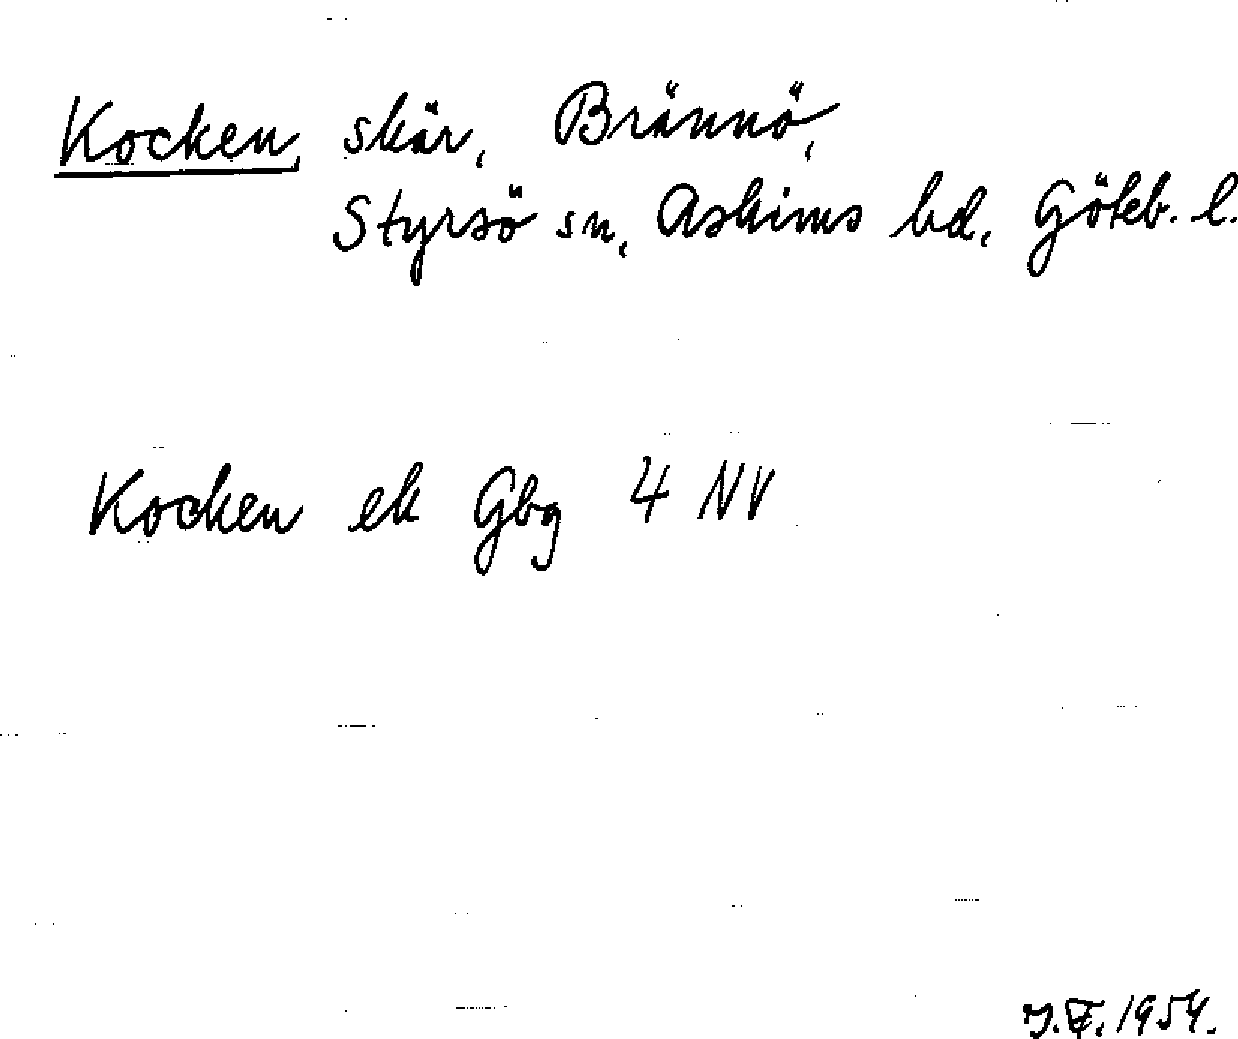 Kocken, skär, Brännö,
Styrsö sn, Askims hd, Göteb. l.
Kocken ek Gbg 4 NV
1954.